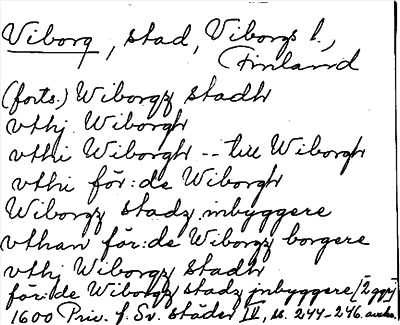 Viborg, stad, Viborgs l.,
Finland
(forts.) Wiborgz stadh
vthj Wiborgh
vthi Wiborgh -- till Wiborgh
vthi för:de Wiborgh
Wiborgz stadz inbyggere
vthan för:de Wiborgz borgere
vthj Wiborgz stadh
för:de Wiborgz stadz jnbyggere (2 ggr)
1600 Priv. f. Sv. städer IV, s. 244-246. avskr.